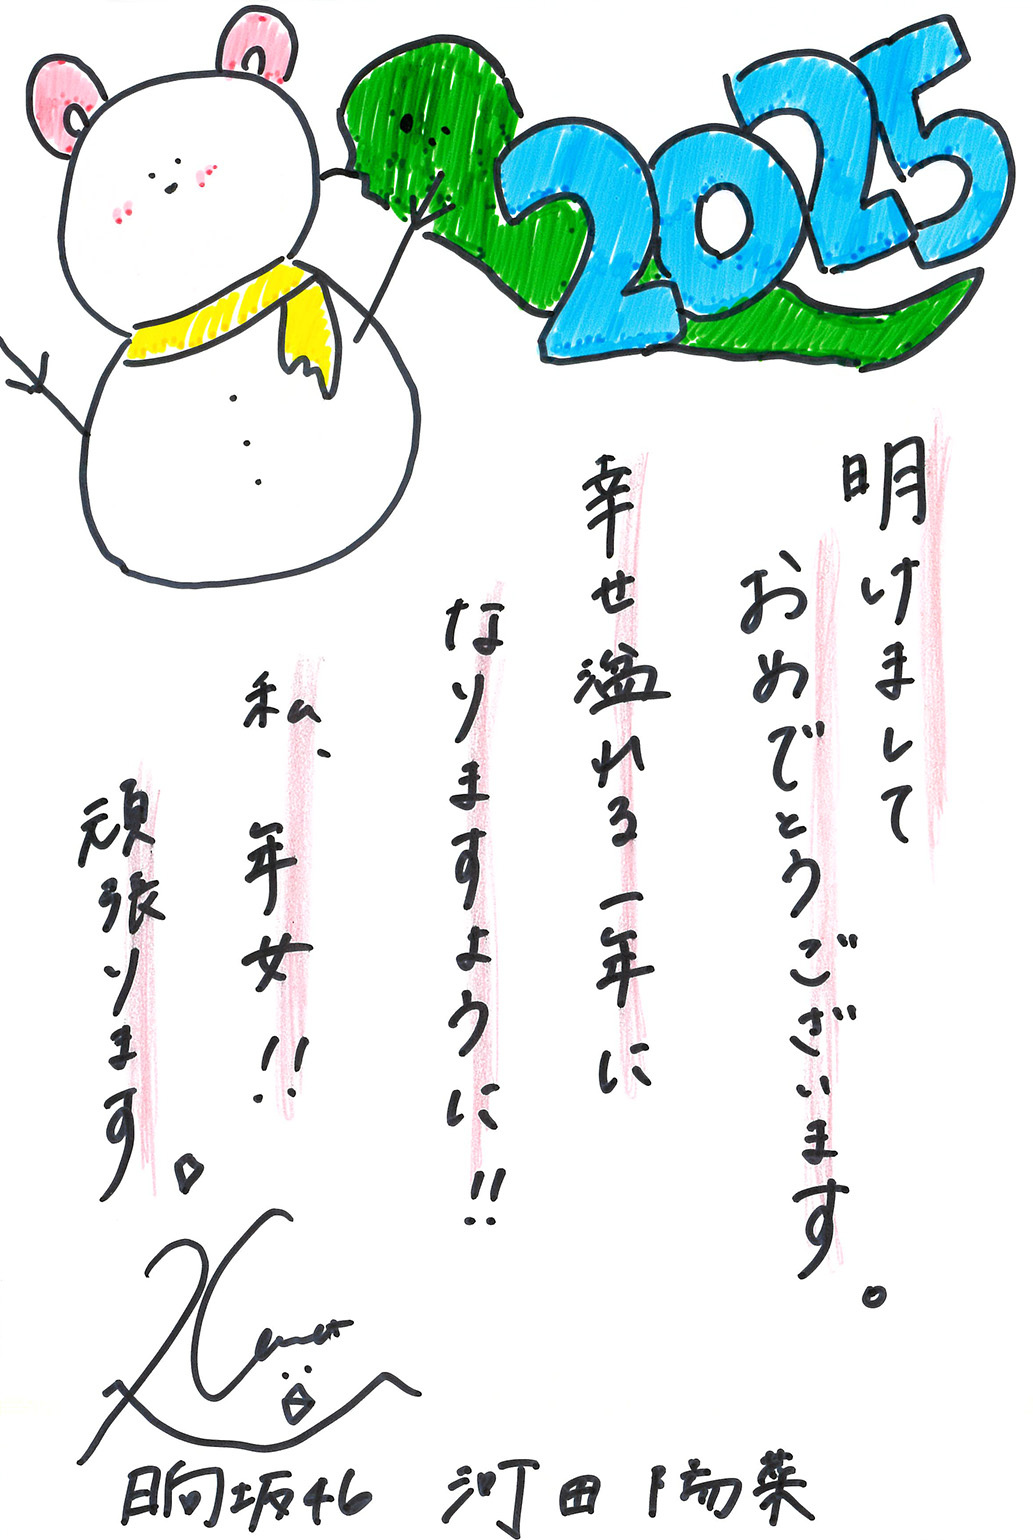 2025
明けまして
おめでとうございます。
幸せ溢れる一年に
なりますように!!
私、年女!!
頑張ります。
日向坂46 河田陽菜